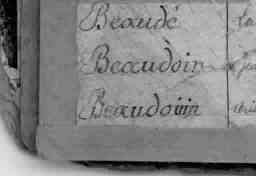 Beaudé
Beaudoin
Beaudouin